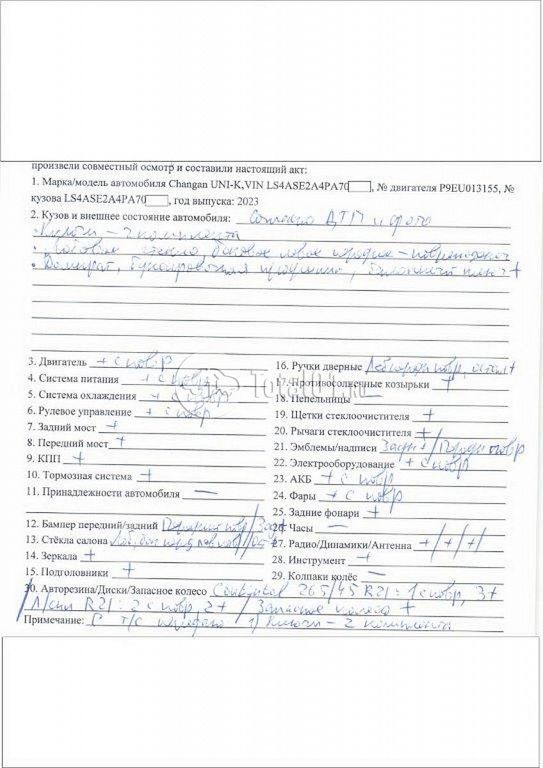 произвели совместный осмотр и составили настоящий акт:
1. Марка/модель автомобиля Changan UNI-K,VIN LS4ASE2A4PA70 , № двигателя P9EU013155, №
кузова LS4ASE2A4PA70 , год выпуска: 2023
2. Кузов и внешнее состояние автомобиля: Согласно ДТП и фото
• Ключи – 2 комплекта
• Лобовое стекло, боковое левое – повреждены
• Домкрат, буксировочная проушина, балонный ключ +
3. Двигатель + с повр
4. Система питания + с повр
5. Система охлаждения + с повр
6. Рулевое управление + с повр
7. Задний мост +
8. Передний мост +
9. КПП +
10. Тормозная система +
11. Принадлежности автомобиля —
12. Бампер передний/задний Передний повр/Зад+
13. Стёкла салона
14. Зеркала +
15. Подголовники +
16. Ручки дверные повр, остал+
17. Противосолнечные козырьки +
18. Пепельницы —
19. Щетки стеклоочистителя +
20. Рычаги стеклоочистителя +
21. Эмблемы/надписи Задн+/Передн повр
22. Электрооборудование + с повр
23. АКБ + с повр
24. Фары + с повр
25. Задние фонари +
26. Часы —
27. Радио/Динамики/Антенна +/+/+/
28. Инструмент +
29. Колпаки колёс —
30. Авторезина/Диски/Запасное колесо 265/45 R21: 1 с повр, 3+
R21: 2 с повр, 2+ / Запасное колесо +
Примечание: С т/с передано 1) Ключи – 2 комплекта